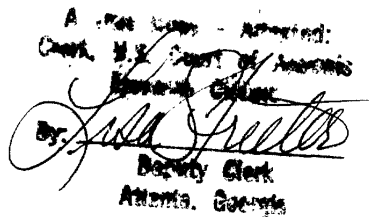 A True Copy - Attested:
Clerk, U.S. Court of Appeals
Eleventh Circuit
By: Lisa
Deputy Clerk
Atlanta, Georgia